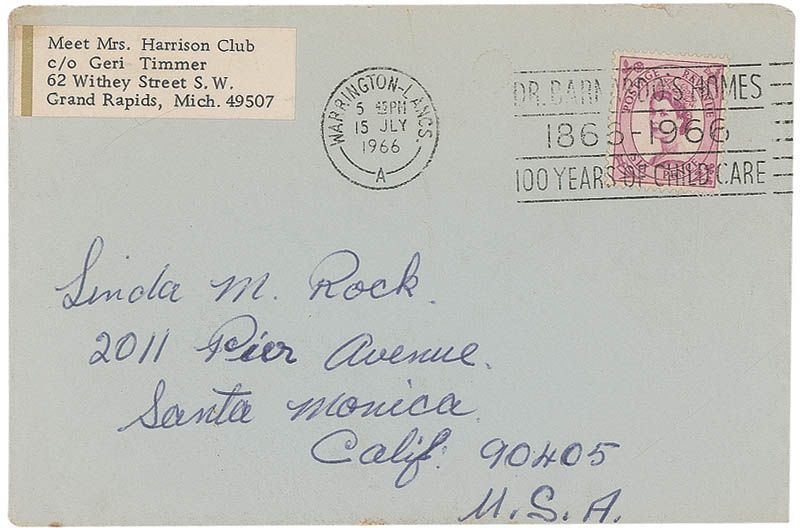 Meet Mrs. Harrison Club
c/o Geri Timmer
62 Withey Street S.W.
Grand Rapids, Mich. 49507
WARRINGTON-LANCS.
5 45PM
15 JLY
1966
A
DR. BARNARDO'S HOMES
1866-1966
100 YEARS OF CHILD CARE
POSTAGE REVENUE
Linda M. Rock.
2011 Pier Avenue.
Santa Monica.
Calif. 90405
U.S.A.